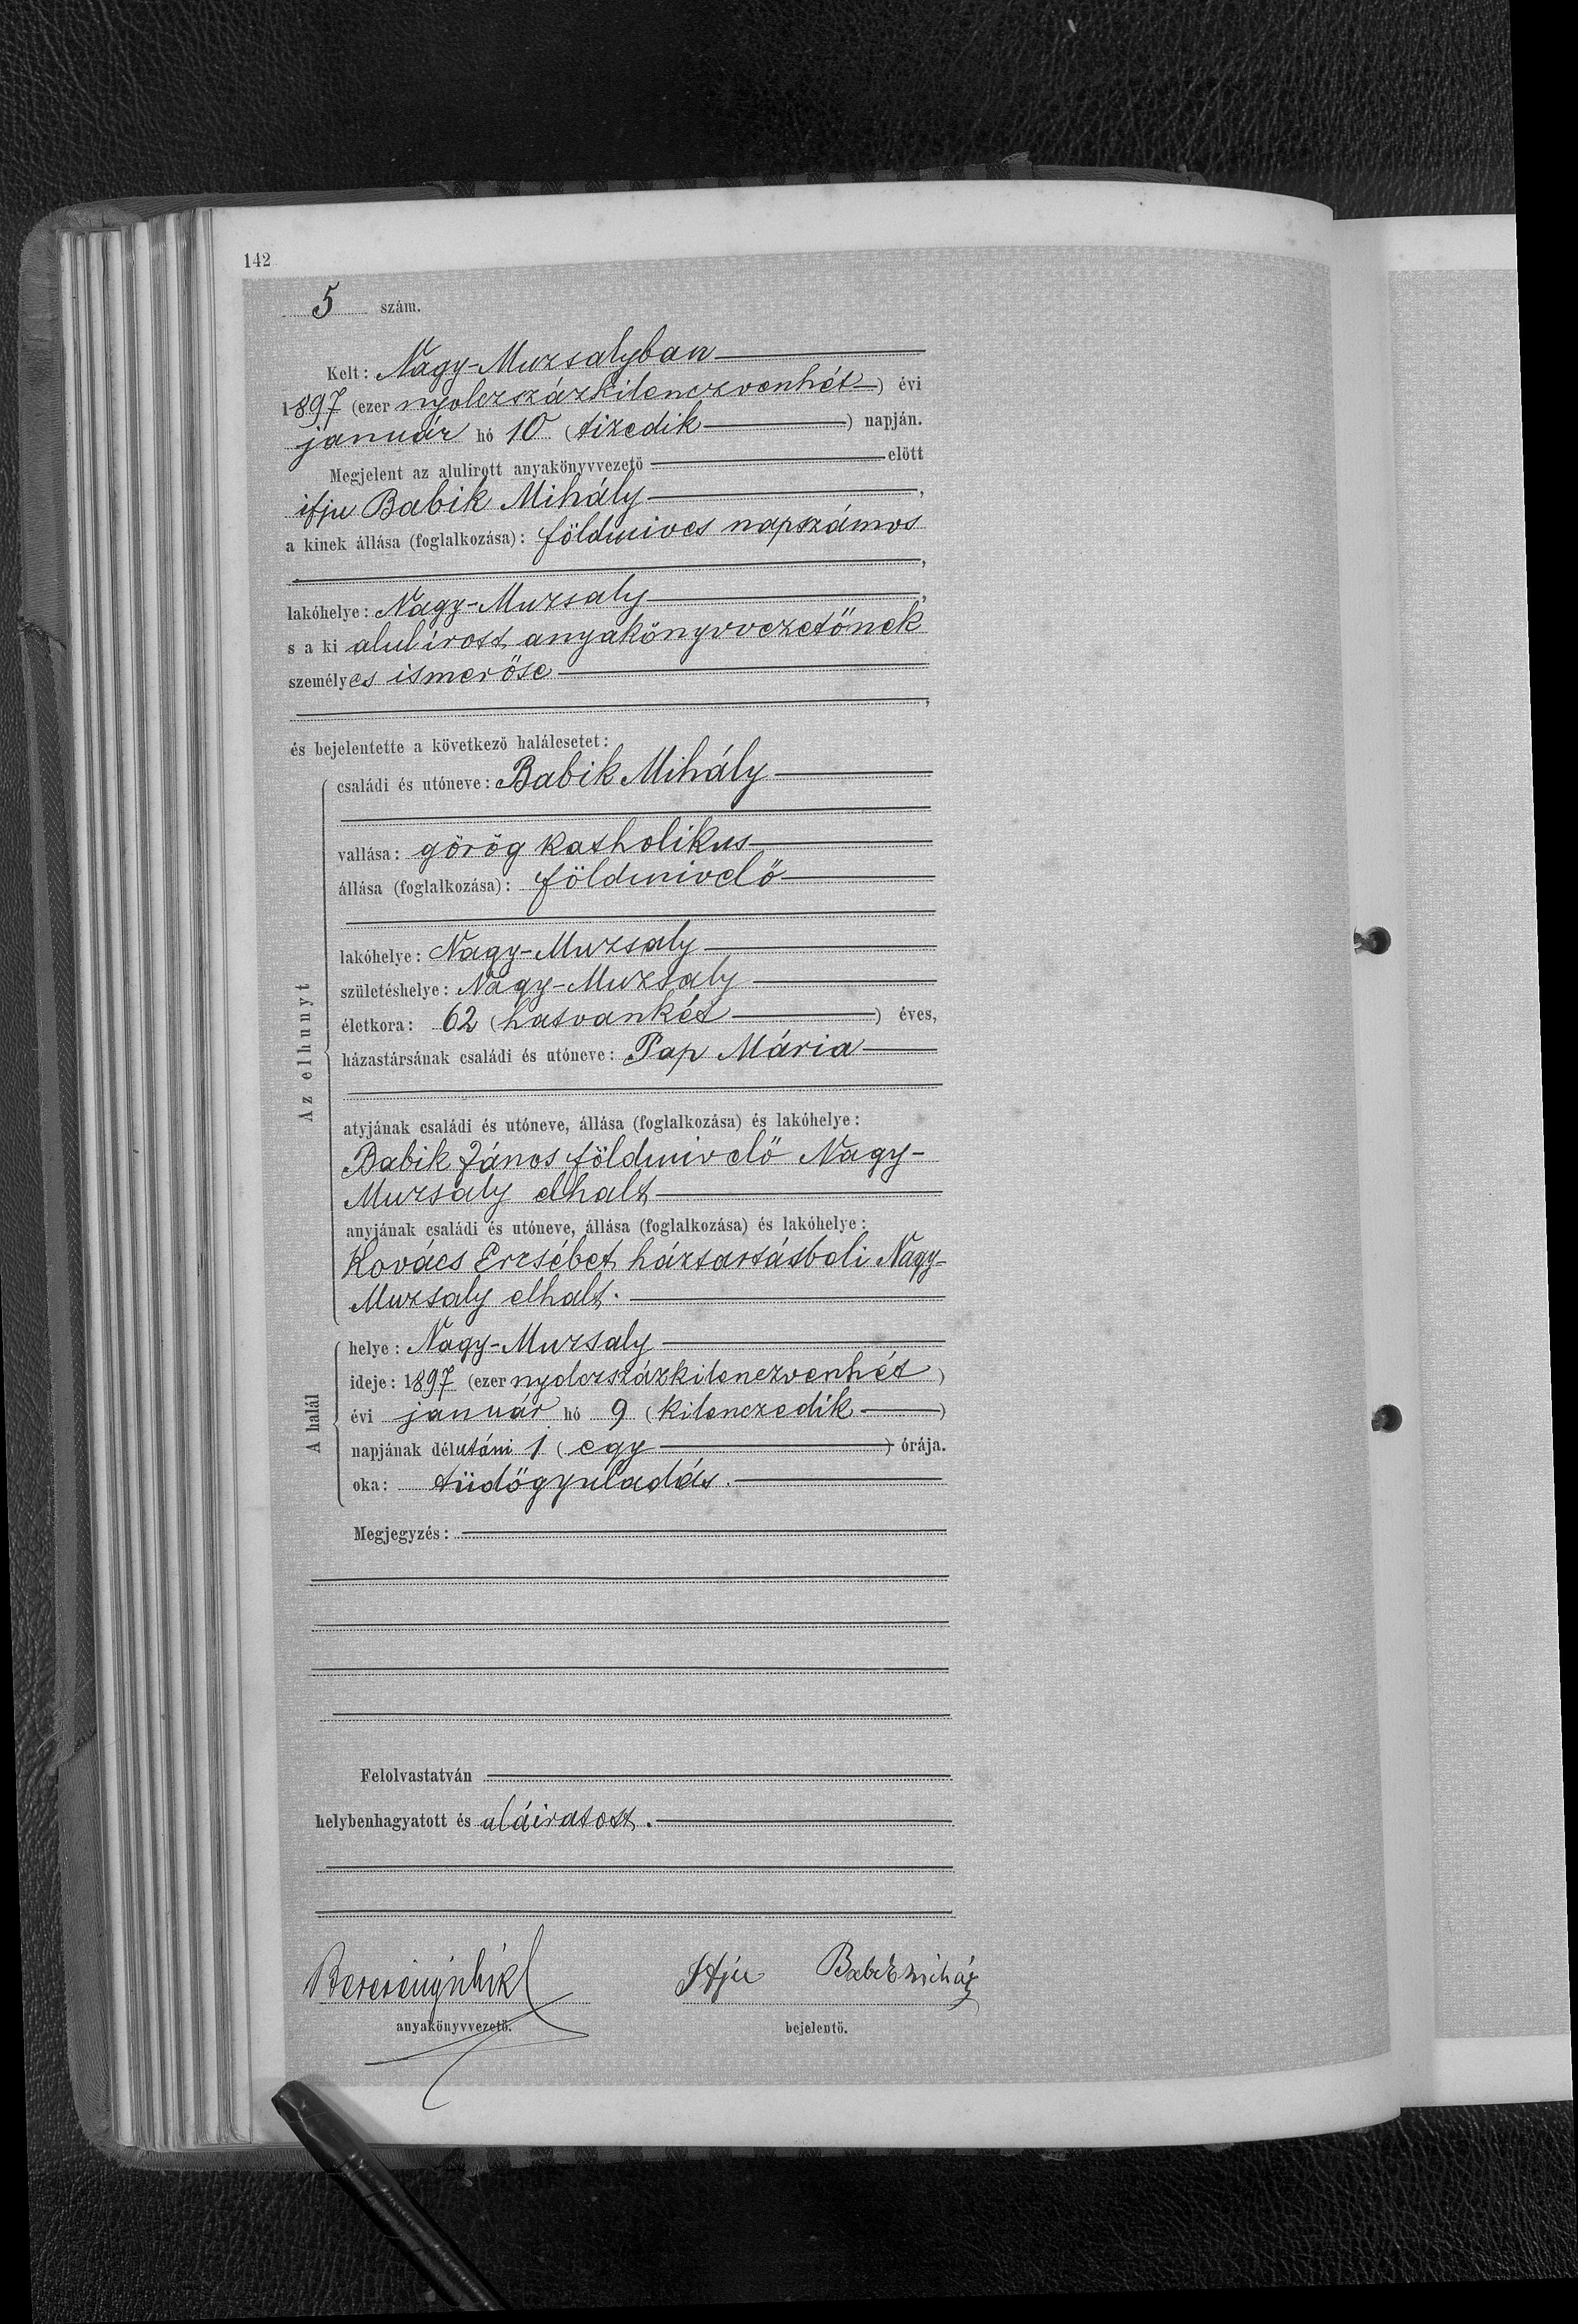 142
5 szám.
Kelt: Nagy-Muzsalyban
1897 (ezer nyolczszázkilenczvenhét) évi
január hó 10 (tizedik) napján.
Megjelent az alulirott anyakönyvvezető előtt
ifju Babik Mihály,
a kinek állása (foglalkozása): földmives napszámos
,
lakóhelye: Nagy-Muzsaly,
s a ki alulírott anyakönyvvezetőnek
személyes ismerőse
,
és bejelentette a következő halálesetet:
Az elhunyt
családi és utóneve: Babik Mihály
vallása: görög katholikus
állása (foglalkozása): földmivelő
lakóhelye: Nagy-Muzsaly
születéshelye: Nagy-Muzsaly
életkora: 62 (hatvankét) éves,
házastársának családi és utóneve: Pap Mária
atyjának családi és utóneve, állása (foglalkozása) és lakóhelye:
Babik János földmivelő Nagy-
Muzsaly elhalt
anyjának családi és utóneve, állása (foglalkozása) és lakóhelye:
Kovács Erzsébet háztartásbeli Nagy-
Muzsaly elhalt.
A halál
helye: Nagy-Muzsaly
ideje: 1897 (ezer nyolczszázkilenczvenhét)
évi január hó 9 (kilenczedik)
napjának délutáni 1 (egy) órája.
oka: tüdőgyuladás.
Megjegyzés:
Felolvastatván
helybenhagyatott és aláiratott.
Ifju Babik Mihály
anyakönyvvezető. bejelentő.